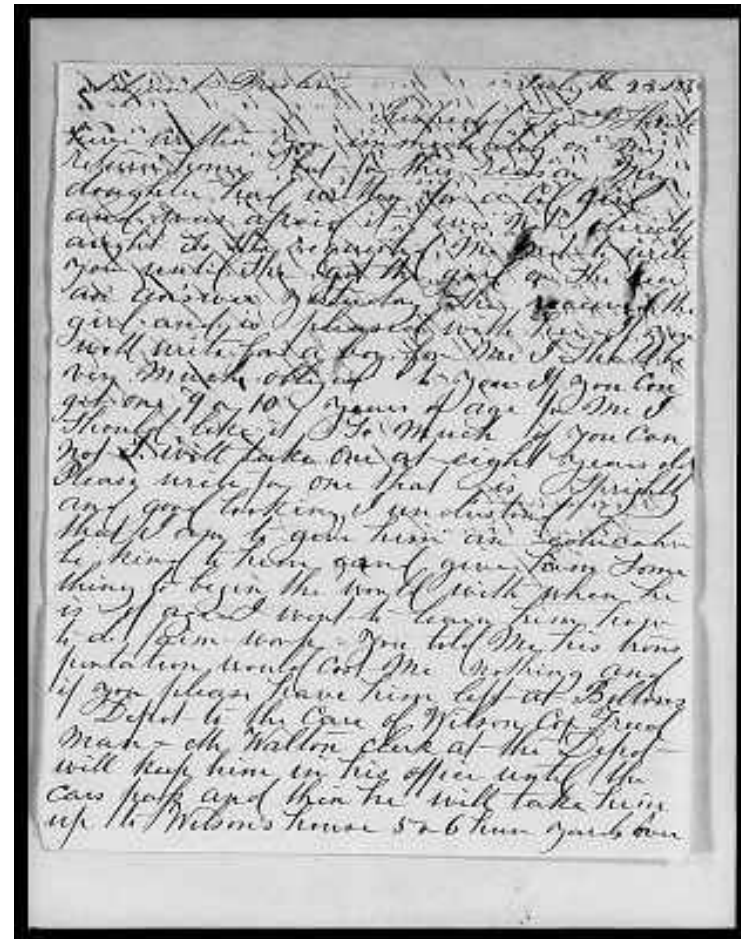 July the 23 186
have written you immediately on my
return home but for this reason My
daughter had wrote for a Col girl
and was afraid it was not directed
aright So she required Me not to write
you until she got the girl or the
an answer yesterday she received the
girl and is pleased with her if you
will write for a boy for Me I shall be
very Much obliged to you If you Can
get one 9 or 10 years of age for Me I
Should like it So Much if you Can
not I will take one at eight years old
Please write for one that is Spright
and good looking I understand
that I am to give him an education
be kind to him and give him Some
thing to begin the world with when he
is of age I want to learn him how
to do farm work - you told Me his trans
portation would Cost Me nothing and
if you please have him left at
Depot to the Care of Wilson Cop Freed
Man - Mr Walton clerk at the Depot
will keep him in his office until the
Cars pass and then he will take him
up to Wilsons house 5 or 6 hun yards over